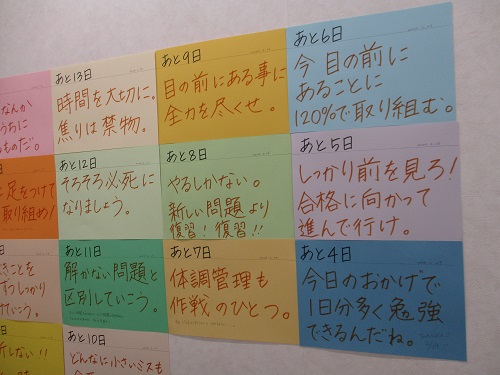 なんか
うちに
ものだ。
あと13日
時間を大切に。
焦りは禁物。
あと9日
目の前にある事に
全力を尽くせ。
あと6日
今目の前に
あることに
120%で取り組む。
と足をつけて
取り組め!
あと12日
そろそろ必死に
なりましょう。
あと8日
やるしかない。
新しい問題より
復習!復習!!
あと5日
しっかり前を見ろ!
合格に向かって
進んで行け。
きことを
ずつしっかり
けていこう。
あと11日
解かない問題と
区別していこう。
あと7日
体調管理も
作戦のひとつ。
あと4日
今日のおかげで
1日分多く勉強
できるんだね。
日
しない!!
あと10日
どんなに小さいミスも